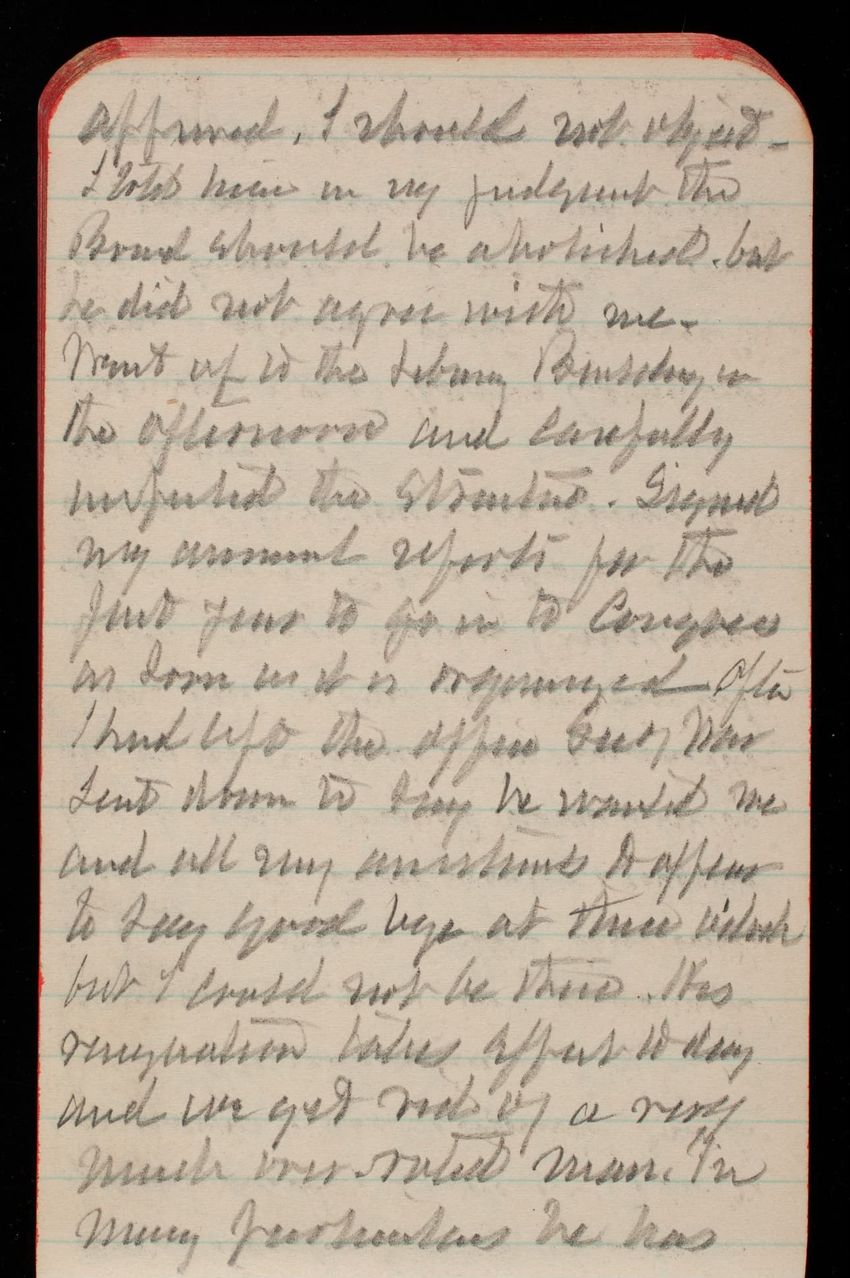 approved, I should not object-
I told him in my judgment the
Board should be abolished. but
he did not agree with me-
Went up to the Library Building in
the afternoon and carefully
inspected the structure. Signed
my annual reports for the
past year to go in to Congress
as soon as it is organized After
I had left the office Secy War
sent down to say he wanted me
and all my assistants to appear
to say good bye at three o'clock
but I could not be there. His
resignation takes effect to day
and we get rid of a very
much over-rated man. In
many particulars he has